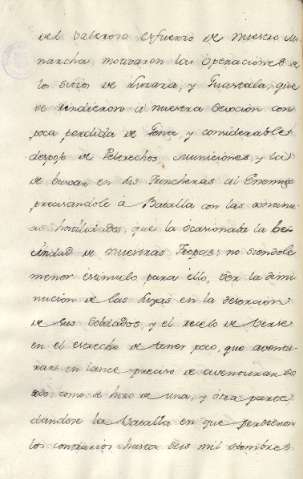 del valeroso esfuerzo de nuestro Mo
narcha, motivaron las operaciones de
los sitios de Luzara, y Guastala, que
se rindieron a nuestra devocion con
poca perdida de Gente y considerable
despojo de Peterechos, Municiones y la
de buscar en sus Trincheras al Enemigo
precisandole á Batalla con las continuas
hostilidades, que la ocasionaba la be
cindad de nuestras Tropas: no siendole
menor estimulo para ello, ver la dimi
nucion de las suyas en la desercion
de sus Soldados, y el recelo de verse
en el estrecho de tener poco, que aventu
rar en lance preciso de
como se hizo de una, y otra parte
dandose la Batalla en que perdieron
los contrarios hasta seis mil hombres